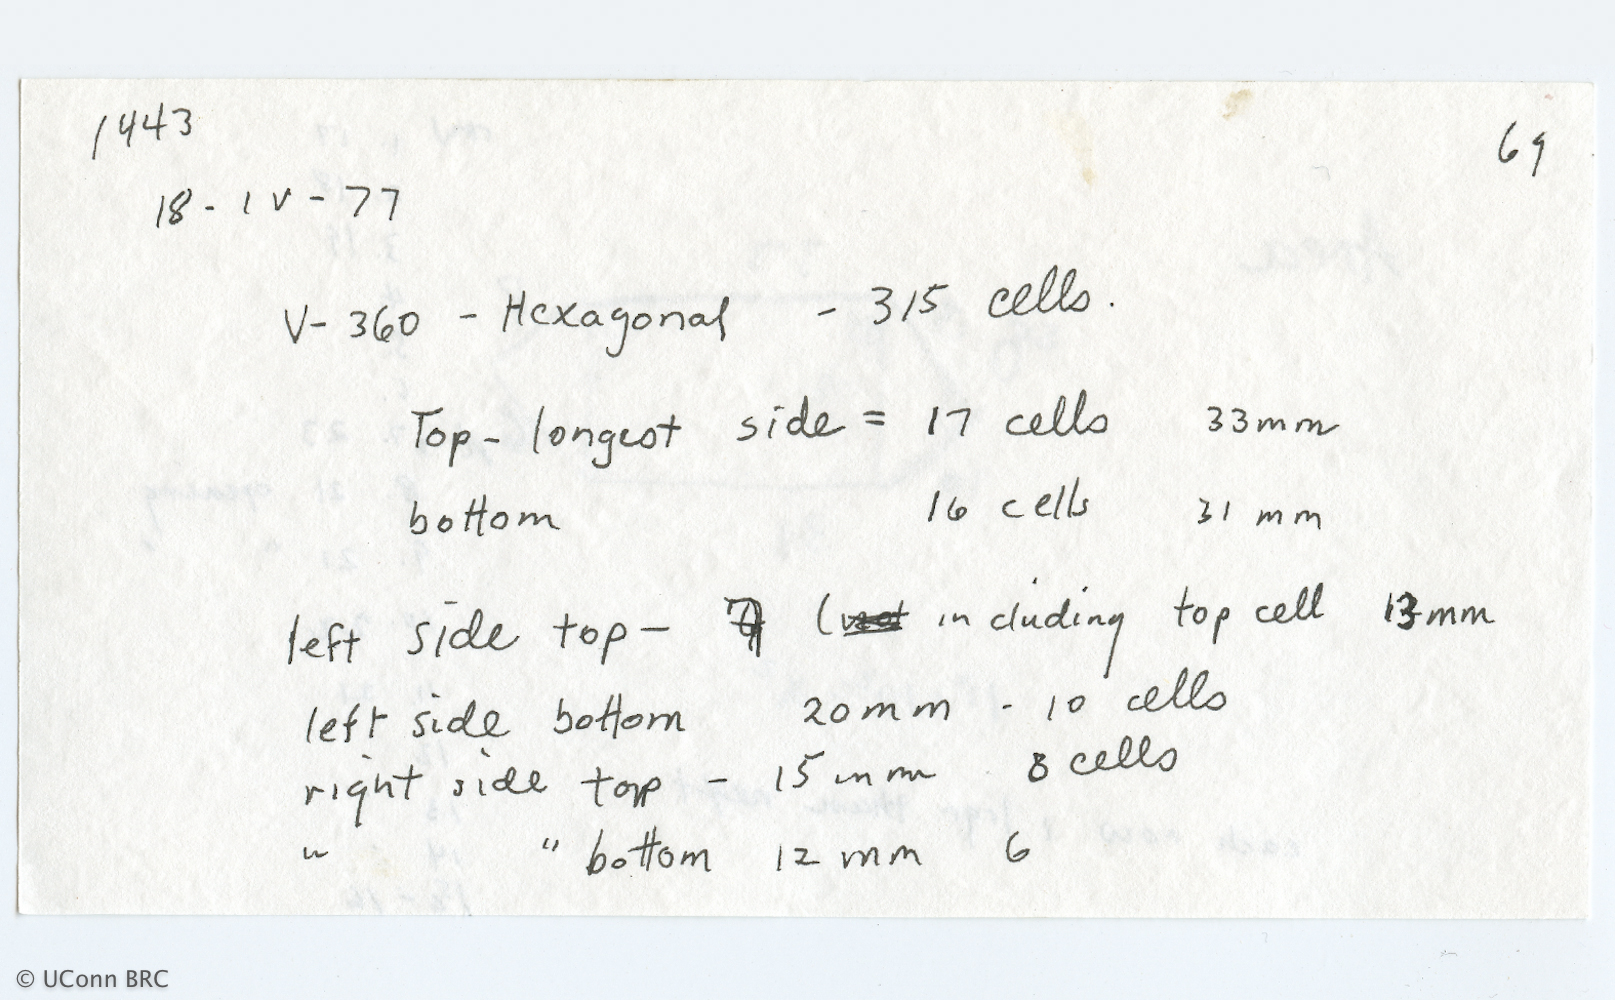 1443
69
18-IV-77
V-360 - Hexagonal - 315 cells.
Top-longest side = 17 cells 33mm
bottom 16 cells 31 mm
left side top - 7 ( including top cell 13mm
left side bottom 20mm - 10 cells
right side top - 15mm 8 cells
" " bottom 12mm 6
© UConn BRC